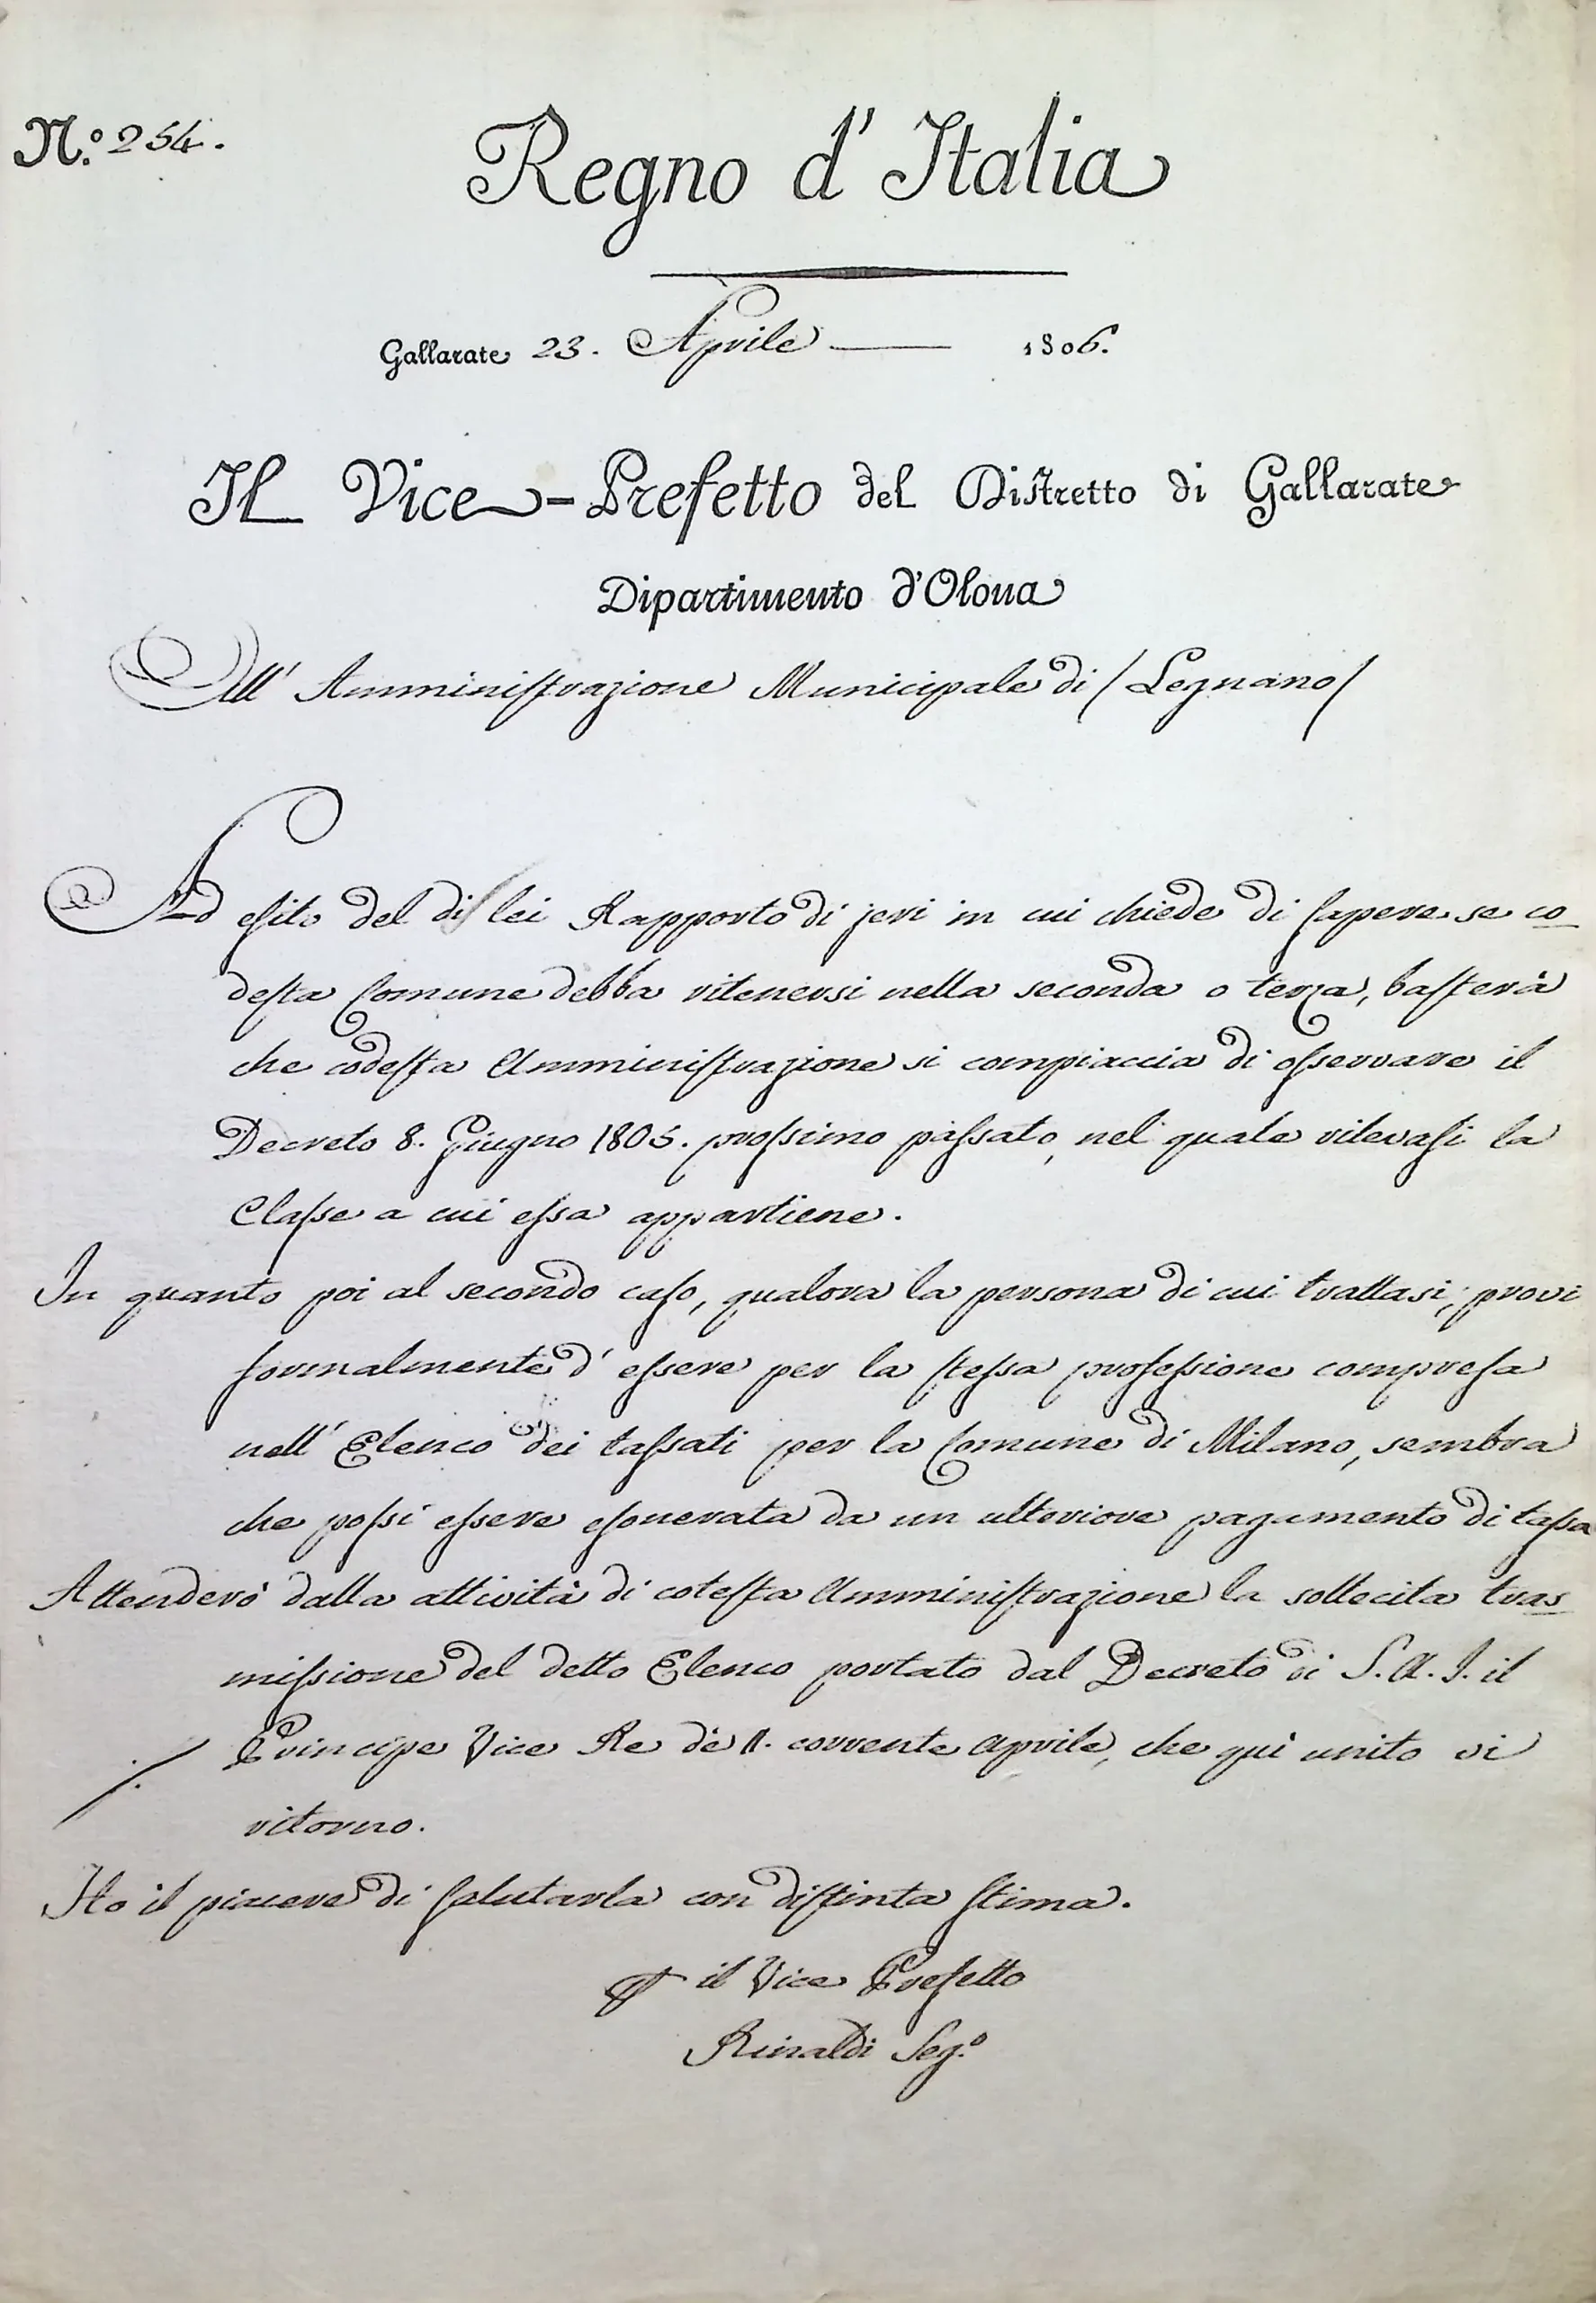 N.º 254.
Regno d'Italia
Gallarate 23. Aprile 1806.
Il Vice-Prefetto del Distretto di Gallarate
Dipartimento d'Olona
All' Amministrazione Municipale di / Legnano /
Ad esito del di lei Rapporto di jeri in cui chiede di sapere se co
desta Comune debba ritenersi nella seconda o terza, basterà
che codesta Amministrazione si compiaccia di osservare il
Decreto 8. Giugno 1805. prossimo passato, nel quale rilevasi la
Classe a cui essa appartiene.
In quanto poi al secondo caso, qualora la persona di cui trattasi, provi
formalmente d' essere per la stessa professione compresa
nell' Elenco dei tassati per la Comune di Milano, sembra
che possi essere esonerata da un ulteriore pagamento di tassa
Attenderò dalla attività di cotesta Amministrazione la sollecita tras
missione del detto Elenco portato dal Decreto di S. A. I. il
Principe Vice Re dè 11. corrente Aprile, che quì unito vi
ritorno.
Ho il piacere di salutarla con distinta stima.
il Vice Prefetto
Rinaldi Seg.º